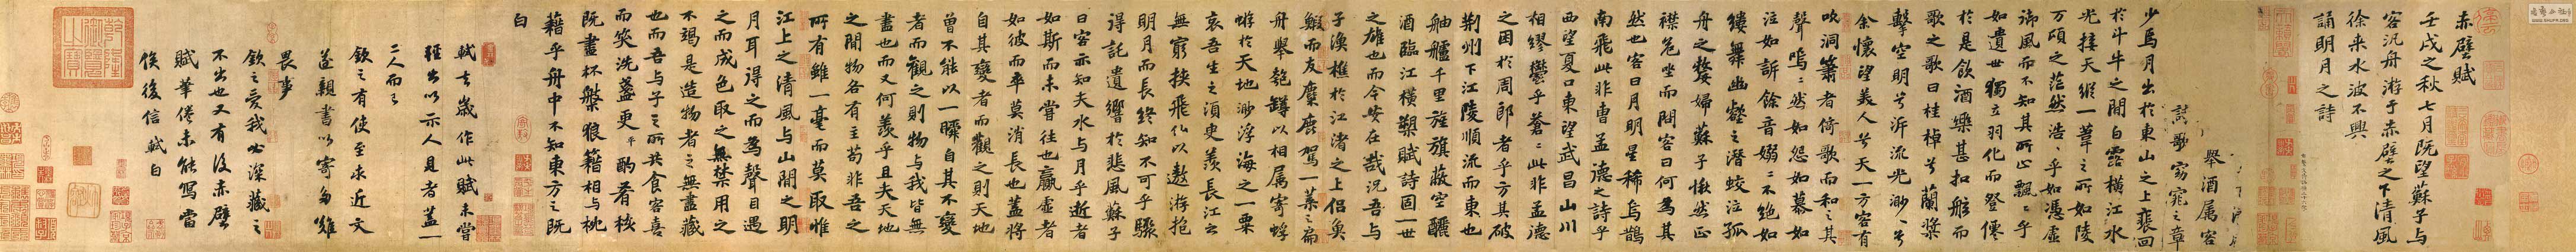 赤壁賦
壬戌之秋七月既望蘇子与
客泛舟游于赤壁之下清風
徐来水波不興
誦明月之詩
舉酒属客
歌窈窕之章
少焉月出於東山之上裵回
於斗牛之間白露橫江水
光接天縱一葦之所如陵
万頃之茫然浩〻乎如馮虛
御風而不知其所止飄〻乎
如遺世獨立羽化而登僊
於是飲酒樂甚扣舷而
歌之歌曰桂棹兮蘭槳
擊空明兮泝流光渺〻兮
余懷望美人兮天一方客有
吹洞簫者倚歌而和之其
聲嗚〻然如怨如慕如
泣如訴餘音嫋〻不絕如
縷舞幽壑之潛蛟泣孤
舟之嫠婦蘇子愀然正
襟危坐而問客曰何為其
然也客曰月明星稀烏鵲
南飛此非曹孟德之詩乎
西望夏口東望武昌山川
相繆鬱乎蒼〻此非孟德
之困於周郎者乎方其破
荊州下江陵順流而東也
舳艫千里旌旗蔽空釃
酒臨江橫槊賦詩固一世
之雄也而今安在哉況吾与
子漁樵於江渚之上侶魚
鰕而友麋鹿駕一葉之扁
舟舉匏罇以相属寄蜉
蝣於天地渺浮海之一粟
哀吾生之須臾羨長江之
無窮挾飛仙以遨游抱
明月而長終知不可乎驟
得託遺響於悲風蘇子
曰客亦知夫水与月乎逝者
如斯而未嘗往也贏虛者
如彼而卒莫消長也蓋將
自其變者而觀之則天地
曾不能以一瞬自其不變
者而觀之則物与我皆無
盡也而又何羨乎且夫天地
之間物各有主苟非吾之
所有雖一毫而莫取惟
江上之清風与山間之明
月耳得之而為聲目遇
之而成色取之無禁用之
不竭是造物者之無盡藏
也而吾与子之所共食客喜
而笑洗盞更平酌肴核
既盡杯盤狼藉相与枕
藉乎舟中不知東方之既
白
軾去歲作此賦未嘗
輕出以示人見者蓋一
二人而已
欽之有使至求近文
遂親書以寄多難
畏事
欽之愛我必深藏之
不出也又有後赤壁
賦筆倦未能寫當
俟後信軾白